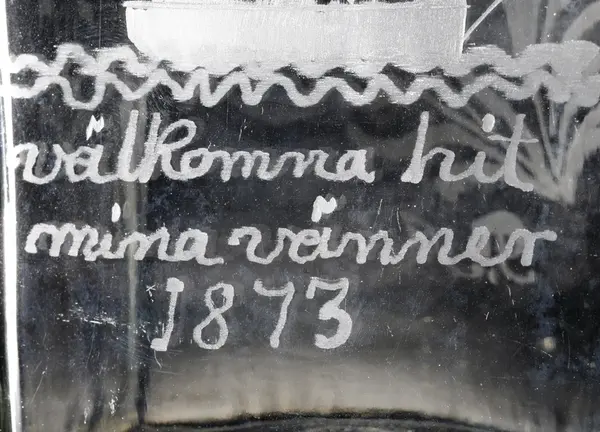 välkomna hit
mina vänner
1873